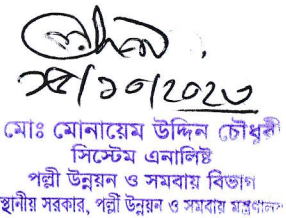 মোঃ মোনায়েম উদ্দিন চৌধুরী
সিস্টেম এনালিষ্ট
পল্লী উন্নয়ন ও সমবায় বিভাগ
স্থানীয় সরকার, পল্লী উন্নয়ন ও সমবায় মন্ত্রণালয়